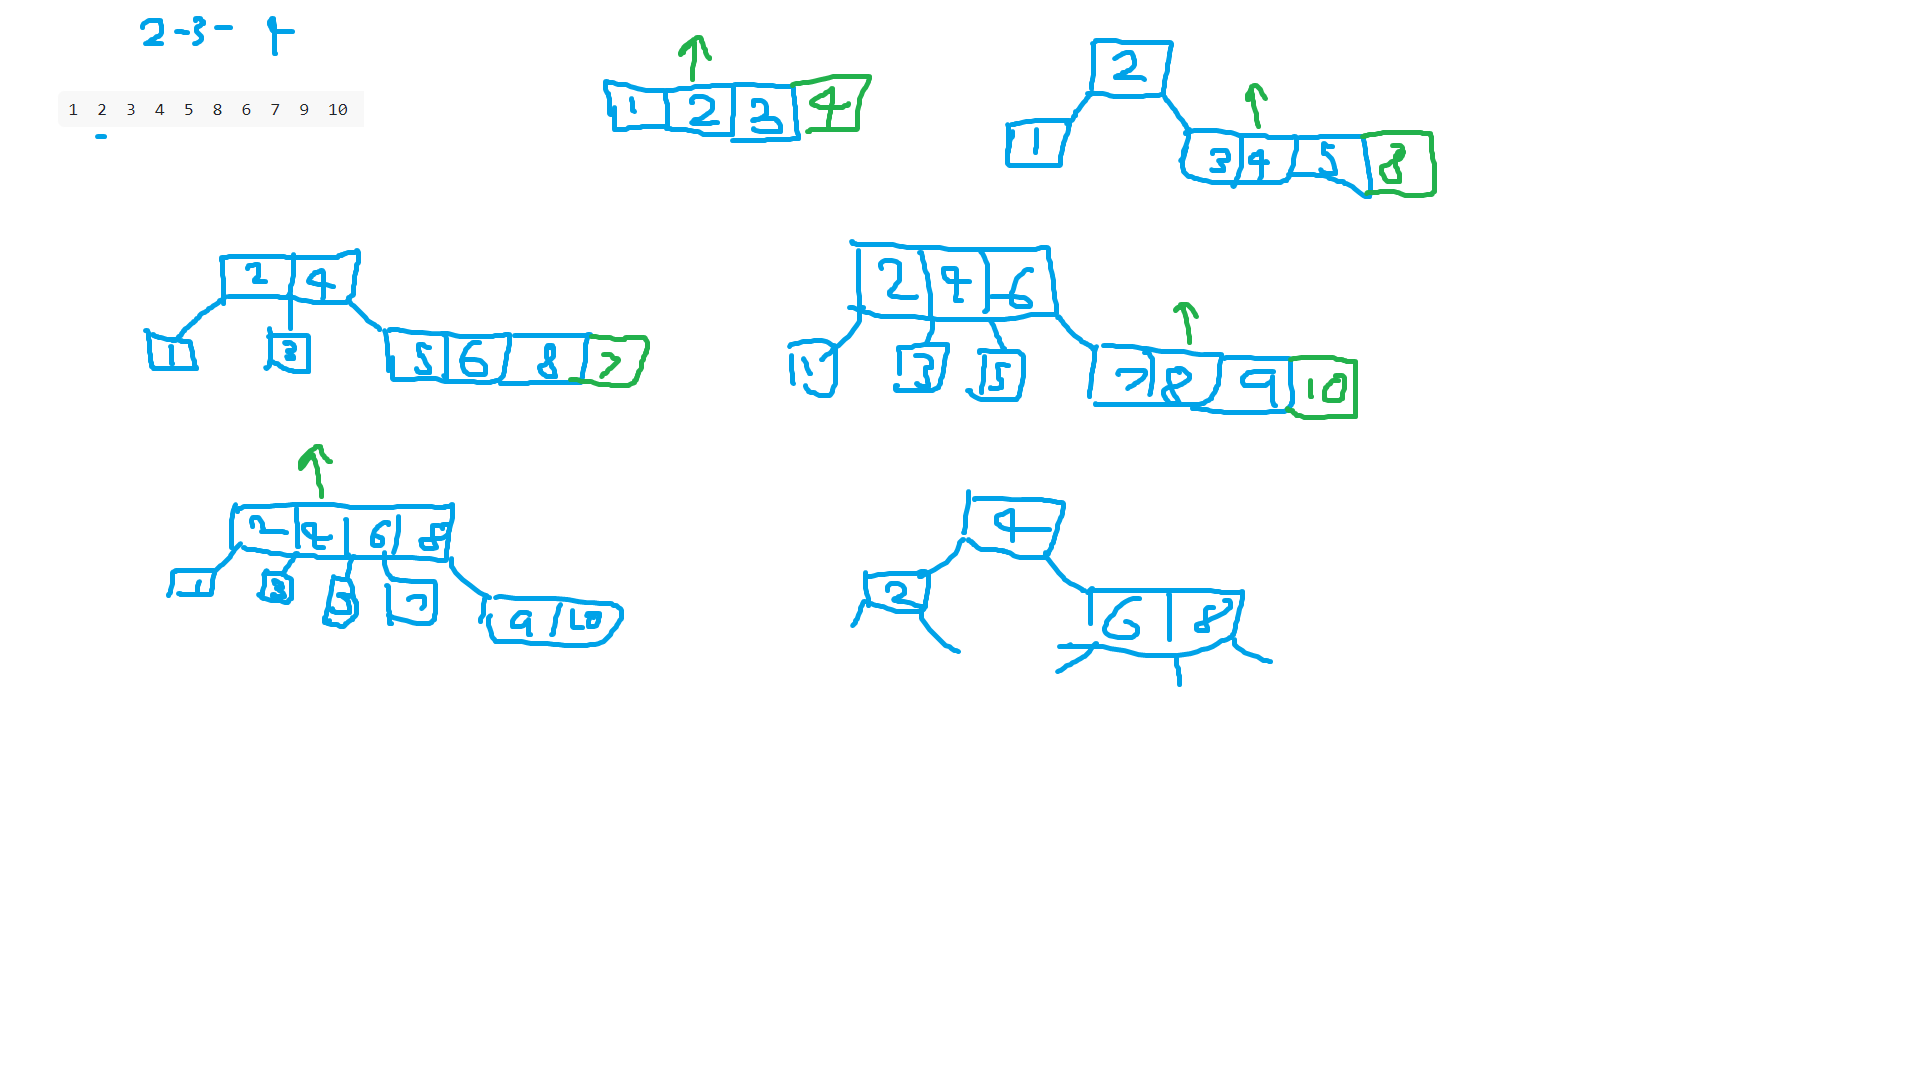 2-3-4
1 2 3 4 5 8 6 7 9 10
1 2 3 4
2
1
3 4 5 8
2 4
1 3
5 6 8 7
2 4 6
1 3 5
7 8 9 10
2 4 6 8
1 3 5 7
9 10
4
2
6 8